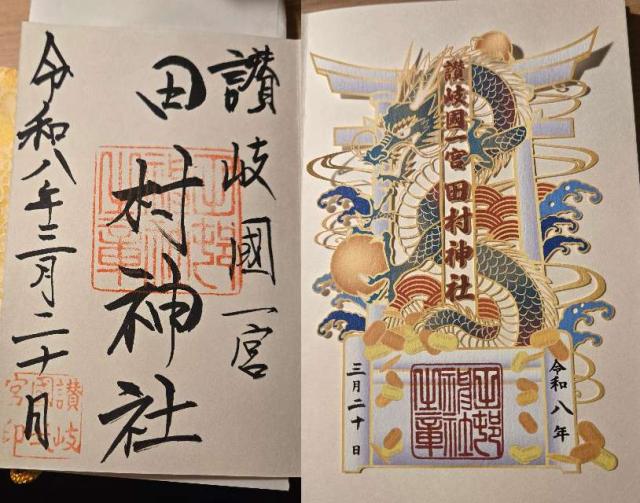 讃岐國一宮
田村神社
令和八年三月二十日
讃岐
宮印
讃岐國一宮田村神社
令和八年
三月二十日